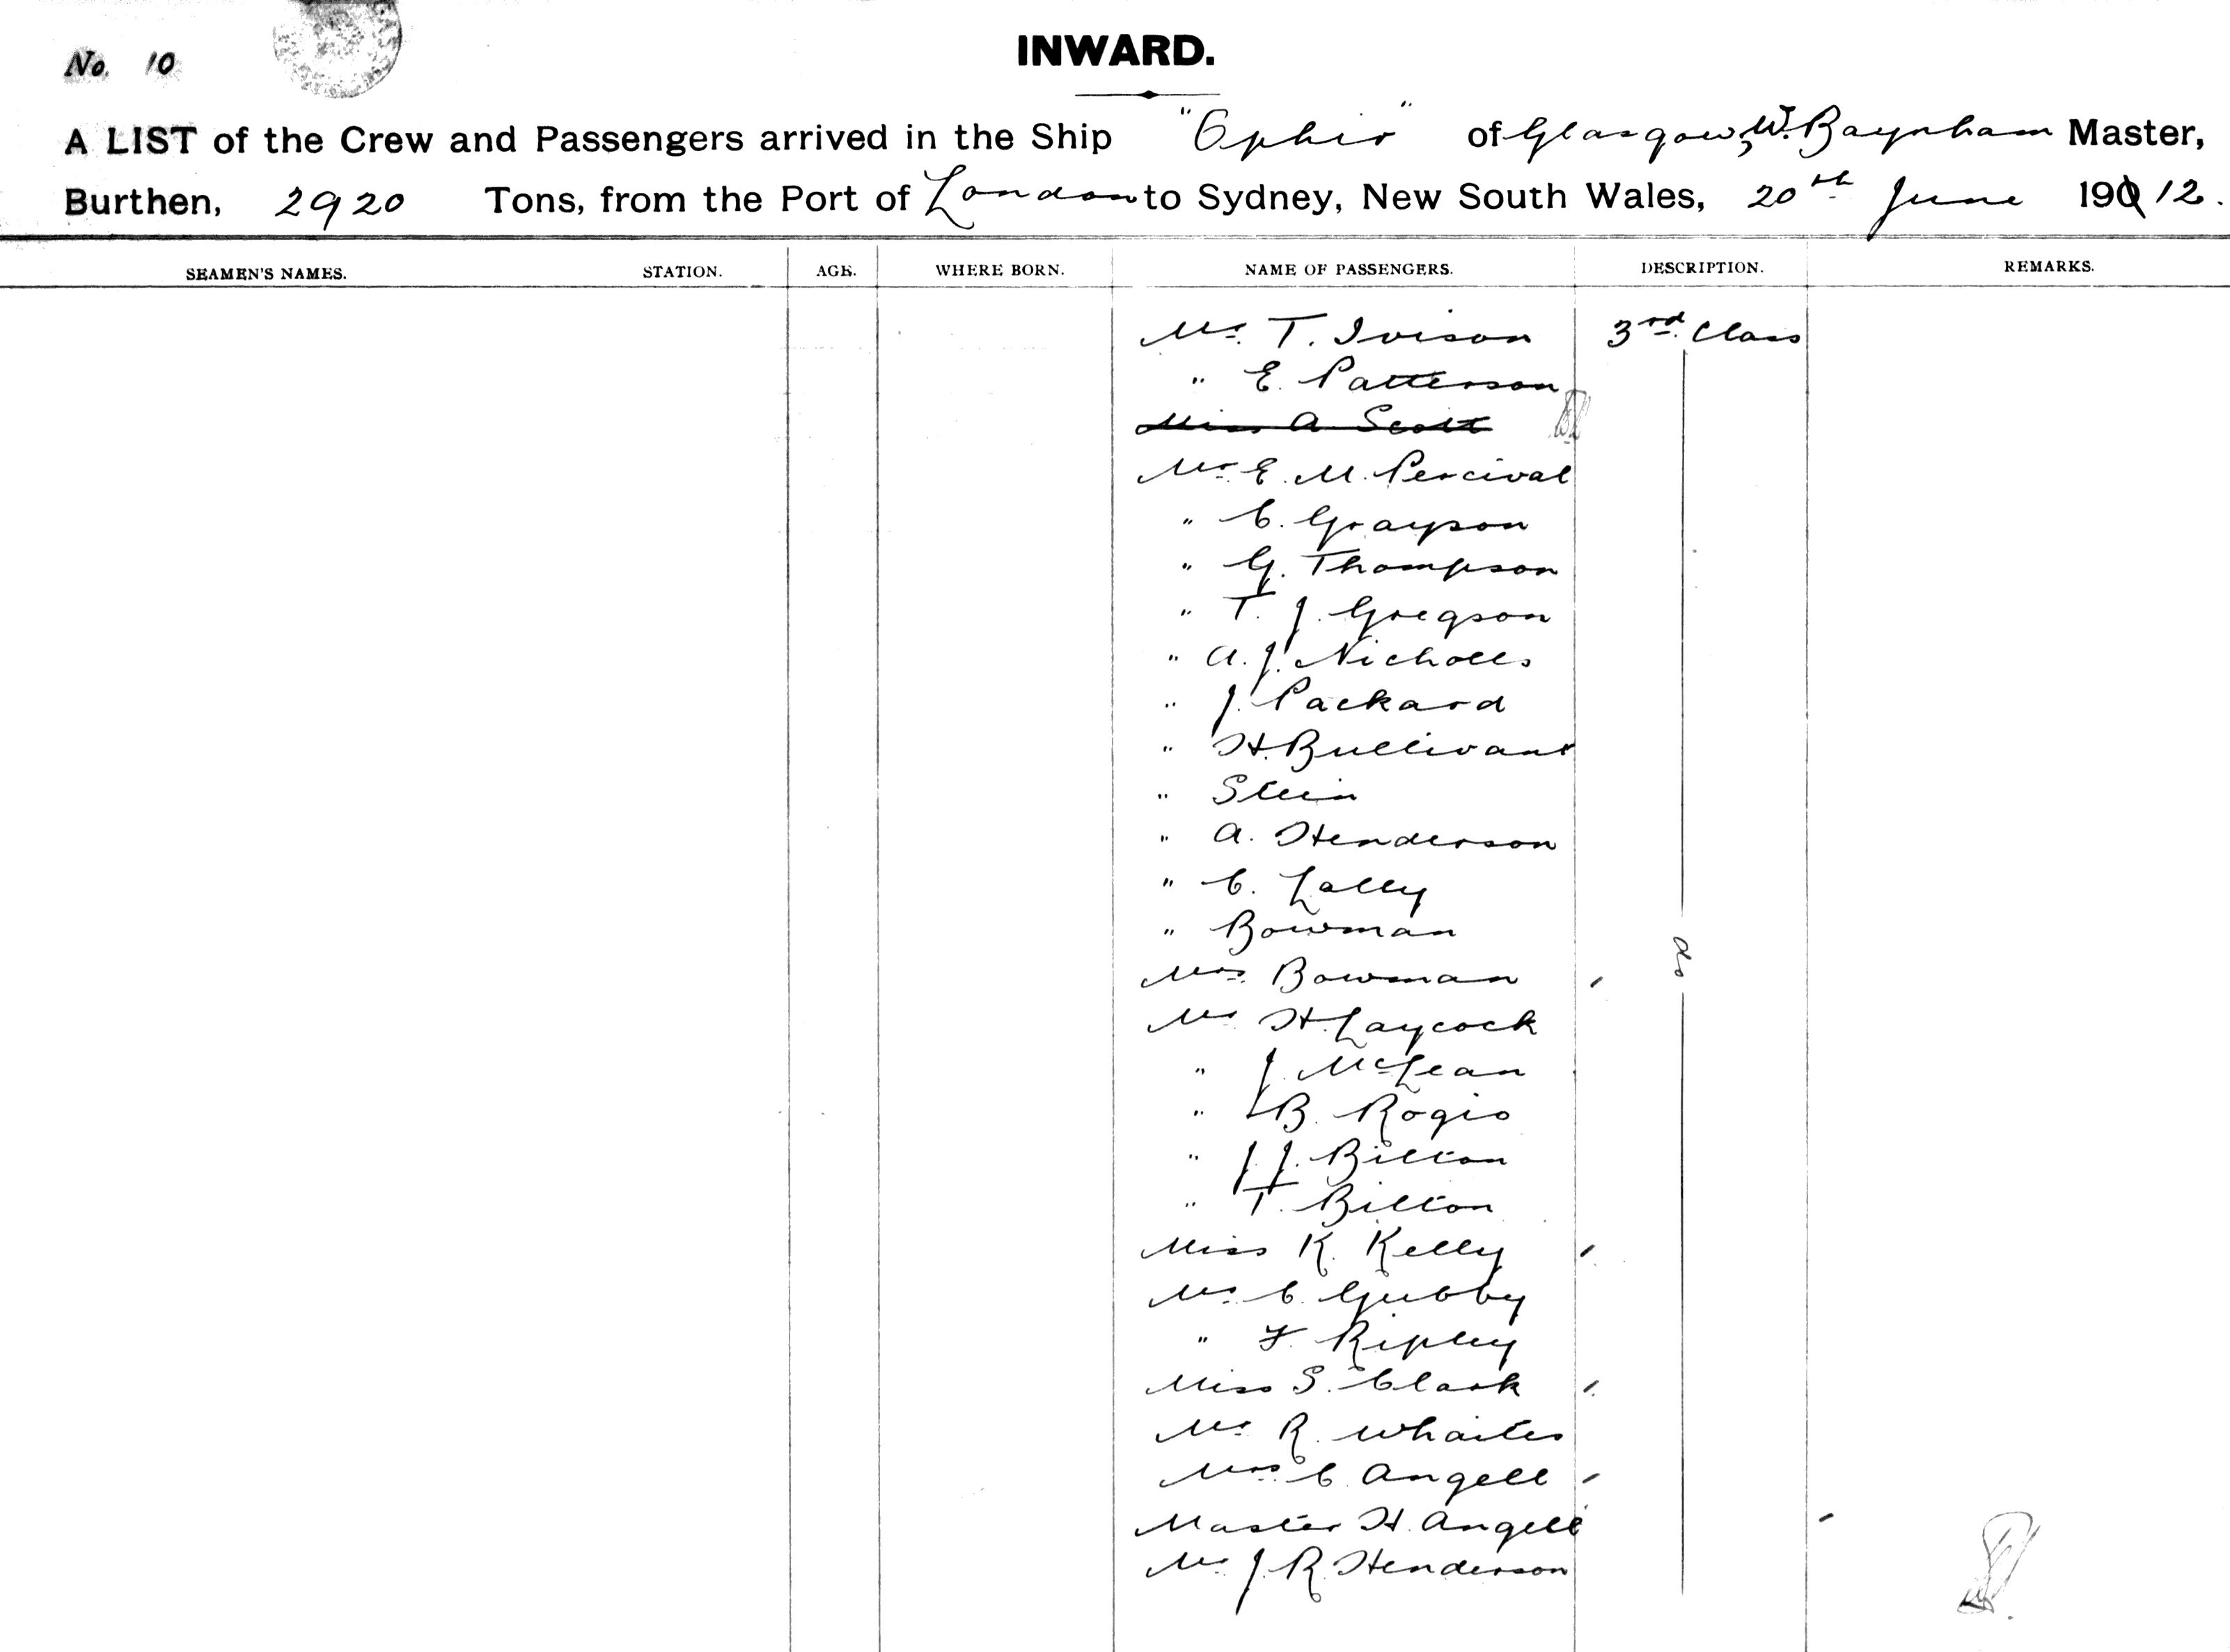 No. 10
INWARD.
A LIST of the Crew and Passengers arrived in the Ship "Ophir" of Glasgow, W. Baynham Master,
Burthen, 2920 Tons, from the Port of London to Sydney, New South Wales, 20th June 190 12.
SEAMEN'S NAMES. STATION. AGE. WHERE BORN. NAME OF PASSENGERS. DESCRIPTION. REMARKS.
Mr. T. Ivison 3rd. Class
" E. Patterson
Miss A Scott
Mr. E. M. Percival
" C. Grayson
" G. Thompson
" T. J. Gregson
" A. J. Nicholls
" J. Packard
" H. Bullivant
" Stein
" A. Henderson
" C. Lally
" Bowman
do
Mrs. Bowman
Mr H. Laycock
" J. McLean
" B. Rogis
" J. J. Bilton
" T. Bilton
Miss K. Kelly
Mr. C. Gubby
" F. Ripley
Miss S. Clark
Mr. R. Whaites
Mrs. C. Angell
Master H. Angell
Mr. J. R. Henderson